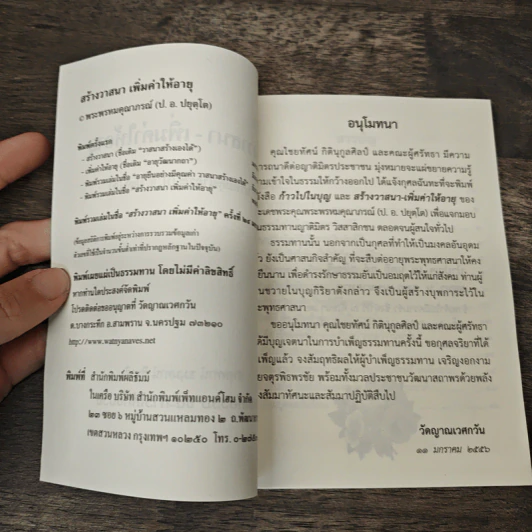 สร้างวาสนา เพิ่มค่าให้อายุ
© พระพรหมคุณาภรณ์ (ป. อ. ปยุตฺโต)
พิมพ์ครั้งแรก
- สร้างวาสนา (ชื่อเดิม "วาสนาสร้างเองได้")
- เพิ่มค่าให้อายุ (ชื่อเดิม "อายุวัฒนกถา")
- พิมพ์รวมเล่มในชื่อ "อายุยืนอย่างมีคุณค่า วาสนาสร้างเองได้"
- พิมพ์รวมเล่มในชื่อ "สร้างวาสนา เพิ่มค่าให้อายุ"
พิมพ์รวมเล่มในชื่อ "สร้างวาสนา เพิ่มค่าให้อายุ" ครั้งที่
พิมพ์เผยแผ่เป็นธรรมทาน โดยไม่มีค่าลิขสิทธิ์
หากท่านใดประสงค์จัดพิมพ์
โปรดติดต่อขออนุญาตที่ วัดญาณเวศกวัน
ต.บางกระทึก อ.สามพราน จ.นครปฐม ๗๓๒๑๐
http://www.watnyanaves.net
พิมพ์ที่ สำนักพิมพ์ผลิธัมม์
ในเครือ บริษัท สำนักพิมพ์เพ็ทแอนด์โฮม จำกัด
๒๓ ซอย ๖ หมู่บ้านสวนแหลมทอง ๒ ถ.พัฒนา
เขตสวนหลวง กรุงเทพฯ ๑๐๒๕๐ โทร.
อนุโมทนา
คุณไชยทัศน์ กิตินุกูลศิลป์ และคณะผู้ศรัทธา มีความ
ารถนาดีต่อญาติมิตรประชาชน มุ่งหมายจะแผ่ขยายความรู้
ามเข้าใจในธรรมให้กว้างออกไป ได้แจ้งกุศลฉันทะที่จะพิมพ์
ังสือ ก้าวไปในบุญ และ สร้างวาสนา-เพิ่มค่าให้อายุ ของ
เดชพระคุณพระพรหมคุณาภรณ์ (ป. อ. ปยุตฺโต) เพื่อแจกมอบ
นธรรมทานญาติมิตร วิสสาสิกชน ตลอดจนผู้สนใจทั่วไป
ธรรมทานนั้น นอกจากเป็นกุศลที่ทำให้เป็นมงคลอันอุดม
ว ยังเป็นศาสนกิจสำคัญ ที่จะสืบต่ออายุพระพุทธศาสนาให้คง
ยืนนาน เพื่อดำรงรักษาธรรมอันเป็นอมฤตไว้ให้แก่สังคม ท่านผู้
นขวายในบุญกิริยาดังกล่าว จึงเป็นผู้สร้างบุพการะไว้ใน
ะพุทธศาสนา
ขออนุโมทนา คุณไชยทัศน์ กิตินุกูลศิลป์ และคณะผู้ศรัทธา
ด้มีบุญเจตนาในการบำเพ็ญธรรมทานครั้งนี้ ขอกุศลจริยาที่ได้
เพ็ญแล้ว จงสัมฤทธิผลให้ผู้บำเพ็ญธรรมทาน เจริญงอกงาม
ยจตุรพิธพรชัย พร้อมทั้งมวลประชาชนวัฒนาสถาพรด้วยพลัง
งสัมมาทัศนะและสัมมาปฏิบัติสืบไป
วัดญาณเวศกวัน
๑๑ มกราคม ๒๕๕๖